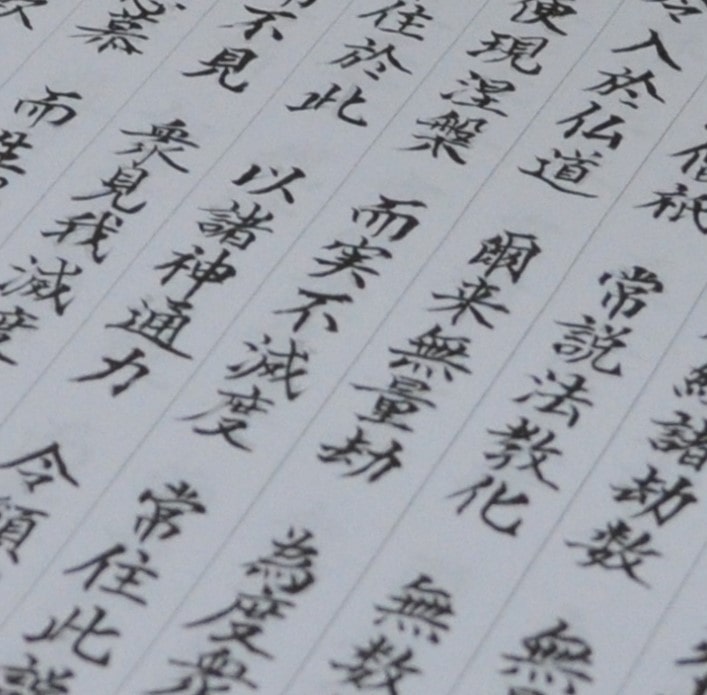 諸劫数 無
僧祇 常説法教化 無数
入於仏道 爾来無量劫 為度衆
便現涅槃 而実不滅度 常住此説
住於此 以諸神通力 令顛
不見 衆見我滅度
慕 而生